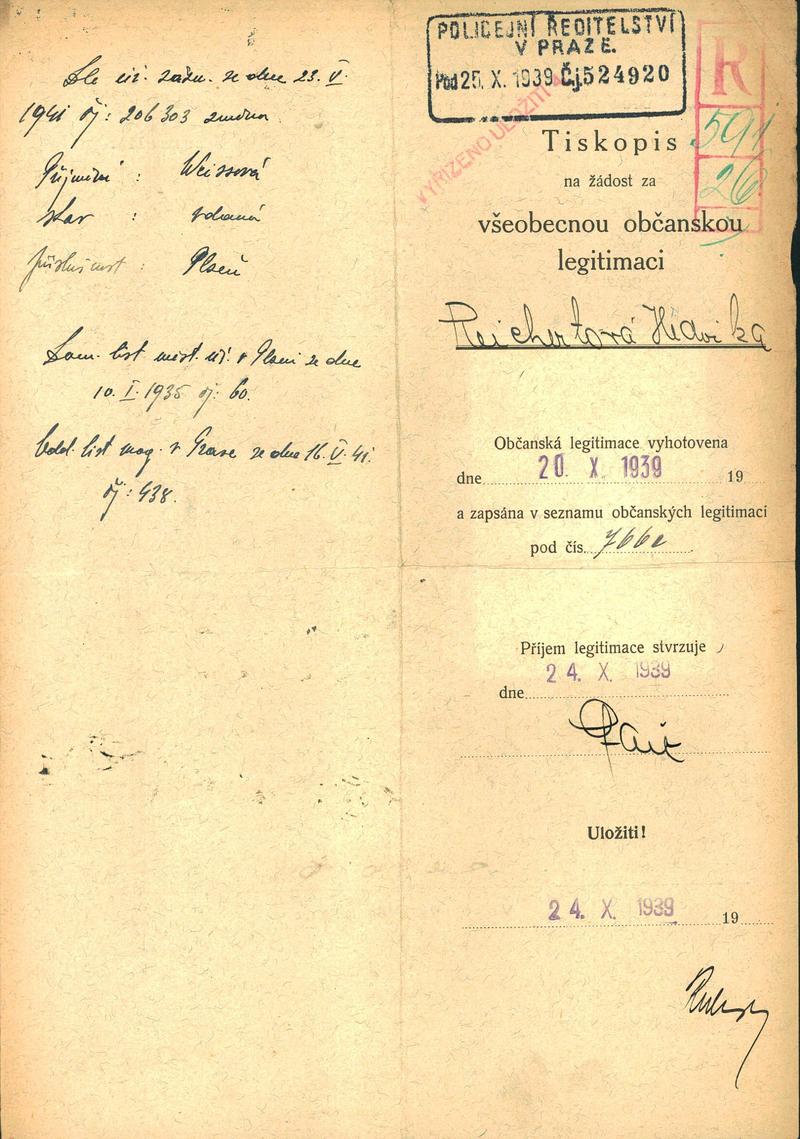 Dle úř. zázn. ze dne 23. V.
1941 čj: 206303 změna
Příjmení : Weissová
stav : vdaná
příslušnost : Plzeň
Dom. list měst. úř. v Plzni ze dne
10. I. 1935 čj: 60.
Odd. list mag. v Praze ze dne 16. V. 41.
čj: 438.
POLICEJNÍ ŘEDITELSTVÍ
V PRAZE.
Pod 25. X. 1939 Čj. 524920
VYŘÍZENO ULOŽITI
R
591
26
Tiskopis
na žádost za
všeobecnou občanskou
legitimaci
Reichertová Hedvika
Občanská legitimace vyhotovena
dne 20 X 1939 19
a zapsána v seznamu občanských legitimací
pod čís.
Příjem legitimace stvrzuje
24. X. 1939
dne
Uložiti!
24. X. 1939 19